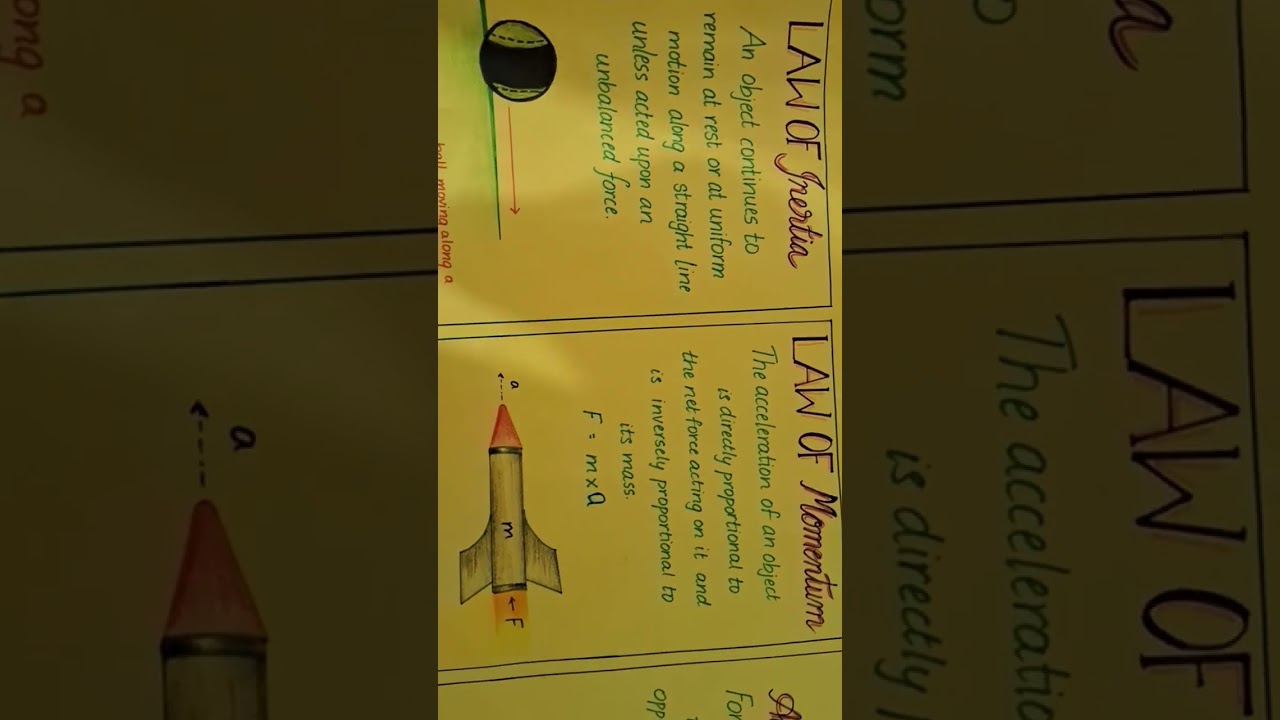 LAW OF Inertia
An object continues to
remain at rest or at uniform
motion along a straight line
unless acted upon an
unbalanced force.
ball moving along a
LAW OF Momentum
The acceleration of an object
is directly proportional to
the net force acting on it and
is inversely proportional to
its mass.
F = m x a
a
m
← F
For
opp
ong a
a
a
orm
o
LAW OF
The acceleratio
is directly